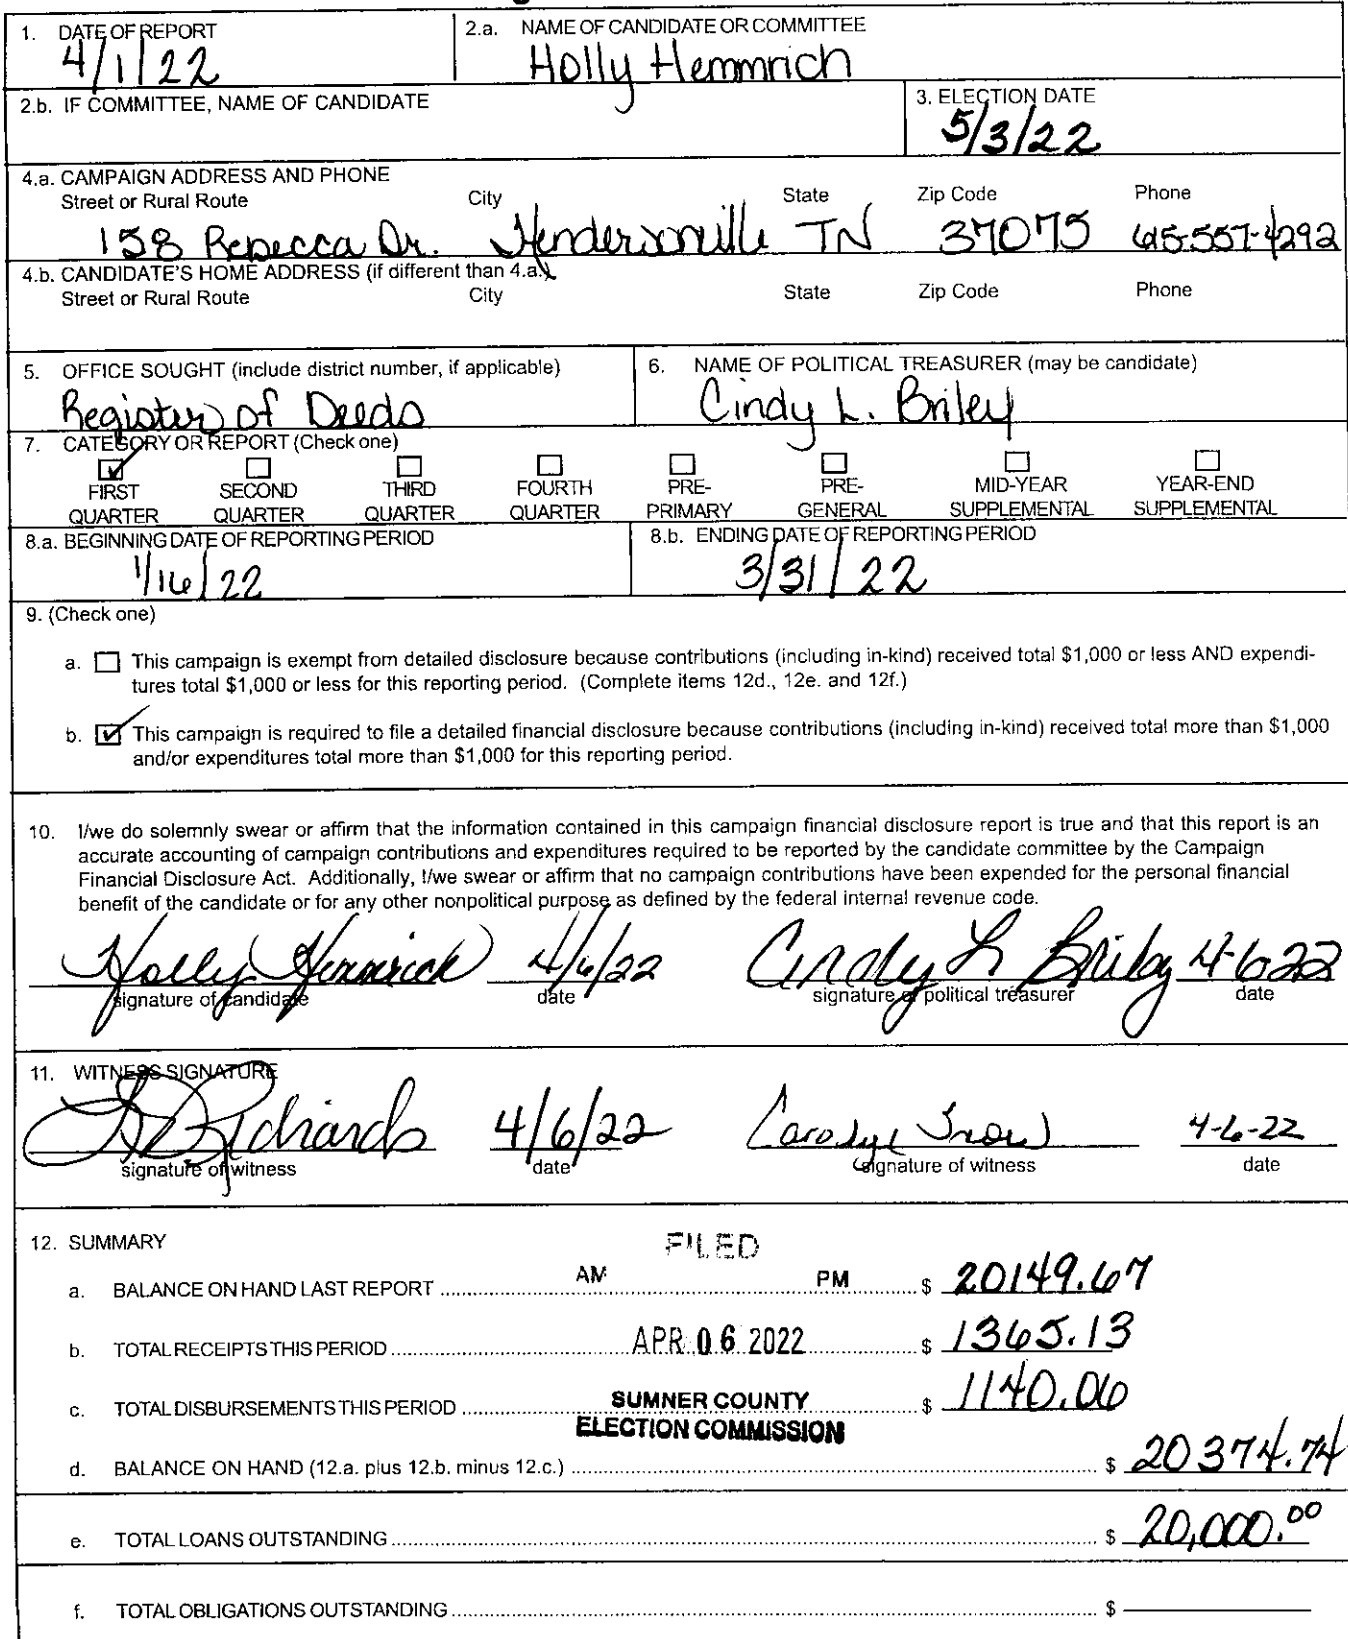 1. DATE OF REPORT
4/1/22
2.a. NAME OF CANDIDATE OR COMMITTEE
Holly Hemmrich
2.b. IF COMMITTEE, NAME OF CANDIDATE
3. ELECTION DATE
5/3/22
4.a. CAMPAIGN ADDRESS AND PHONE
Street or Rural Route City State Zip Code Phone
158 Rebecca Dr. Hendersonville TN 37075 615-557-4292
4.b. CANDIDATE'S HOME ADDRESS (if different than 4.a.)
Street or Rural Route City State Zip Code Phone
5. OFFICE SOUGHT (include district number, if applicable)
Register of Deeds
6. NAME OF POLITICAL TREASURER (may be candidate)
Cindy L. Briley
7. CATEGORY OR REPORT (Check one)
FIRST QUARTER
SECOND QUARTER
THIRD QUARTER
FOURTH QUARTER
PRE-PRIMARY
PRE-GENERAL
MID-YEAR SUPPLEMENTAL
YEAR-END SUPPLEMENTAL
8.a. BEGINNING DATE OF REPORTING PERIOD
1/16/22
8.b. ENDING DATE OF REPORTING PERIOD
3/31/22
9. (Check one)
a. This campaign is exempt from detailed disclosure because contributions (including in-kind) received total $1,000 or less AND expendi-
tures total $1,000 or less for this reporting period. (Complete items 12d., 12e. and 12f.)
b. This campaign is required to file a detailed financial disclosure because contributions (including in-kind) received total more than $1,000
and/or expenditures total more than $1,000 for this reporting period.
10. I/we do solemnly swear or affirm that the information contained in this campaign financial disclosure report is true and that this report is an
accurate accounting of campaign contributions and expenditures required to be reported by the candidate committee by the Campaign
Financial Disclosure Act. Additionally, I/we swear or affirm that no campaign contributions have been expended for the personal financial
benefit of the candidate or for any other nonpolitical purpose as defined by the federal internal revenue code.
Holly Hemmrich 4/6/22 Cindy L Briley 4-6-22
signature of candidate date signature of political treasurer date
11. WITNESS SIGNATURE
Richards 4/6/22 4-6-22
signature of witness date signature of witness date
12. SUMMARY
FILED
AM PM
a. BALANCE ON HAND LAST REPORT $ 20149.67
b. TOTAL RECEIPTS THIS PERIOD $ 1365.13
APR 06 2022
c. TOTAL DISBURSEMENTS THIS PERIOD $ 1140.06
SUMNER COUNTY
ELECTION COMMISSION
d. BALANCE ON HAND (12.a. plus 12.b. minus 12.c.) $ 20374.74
e. TOTAL LOANS OUTSTANDING $ 20,000.00
f. TOTAL OBLIGATIONS OUTSTANDING $